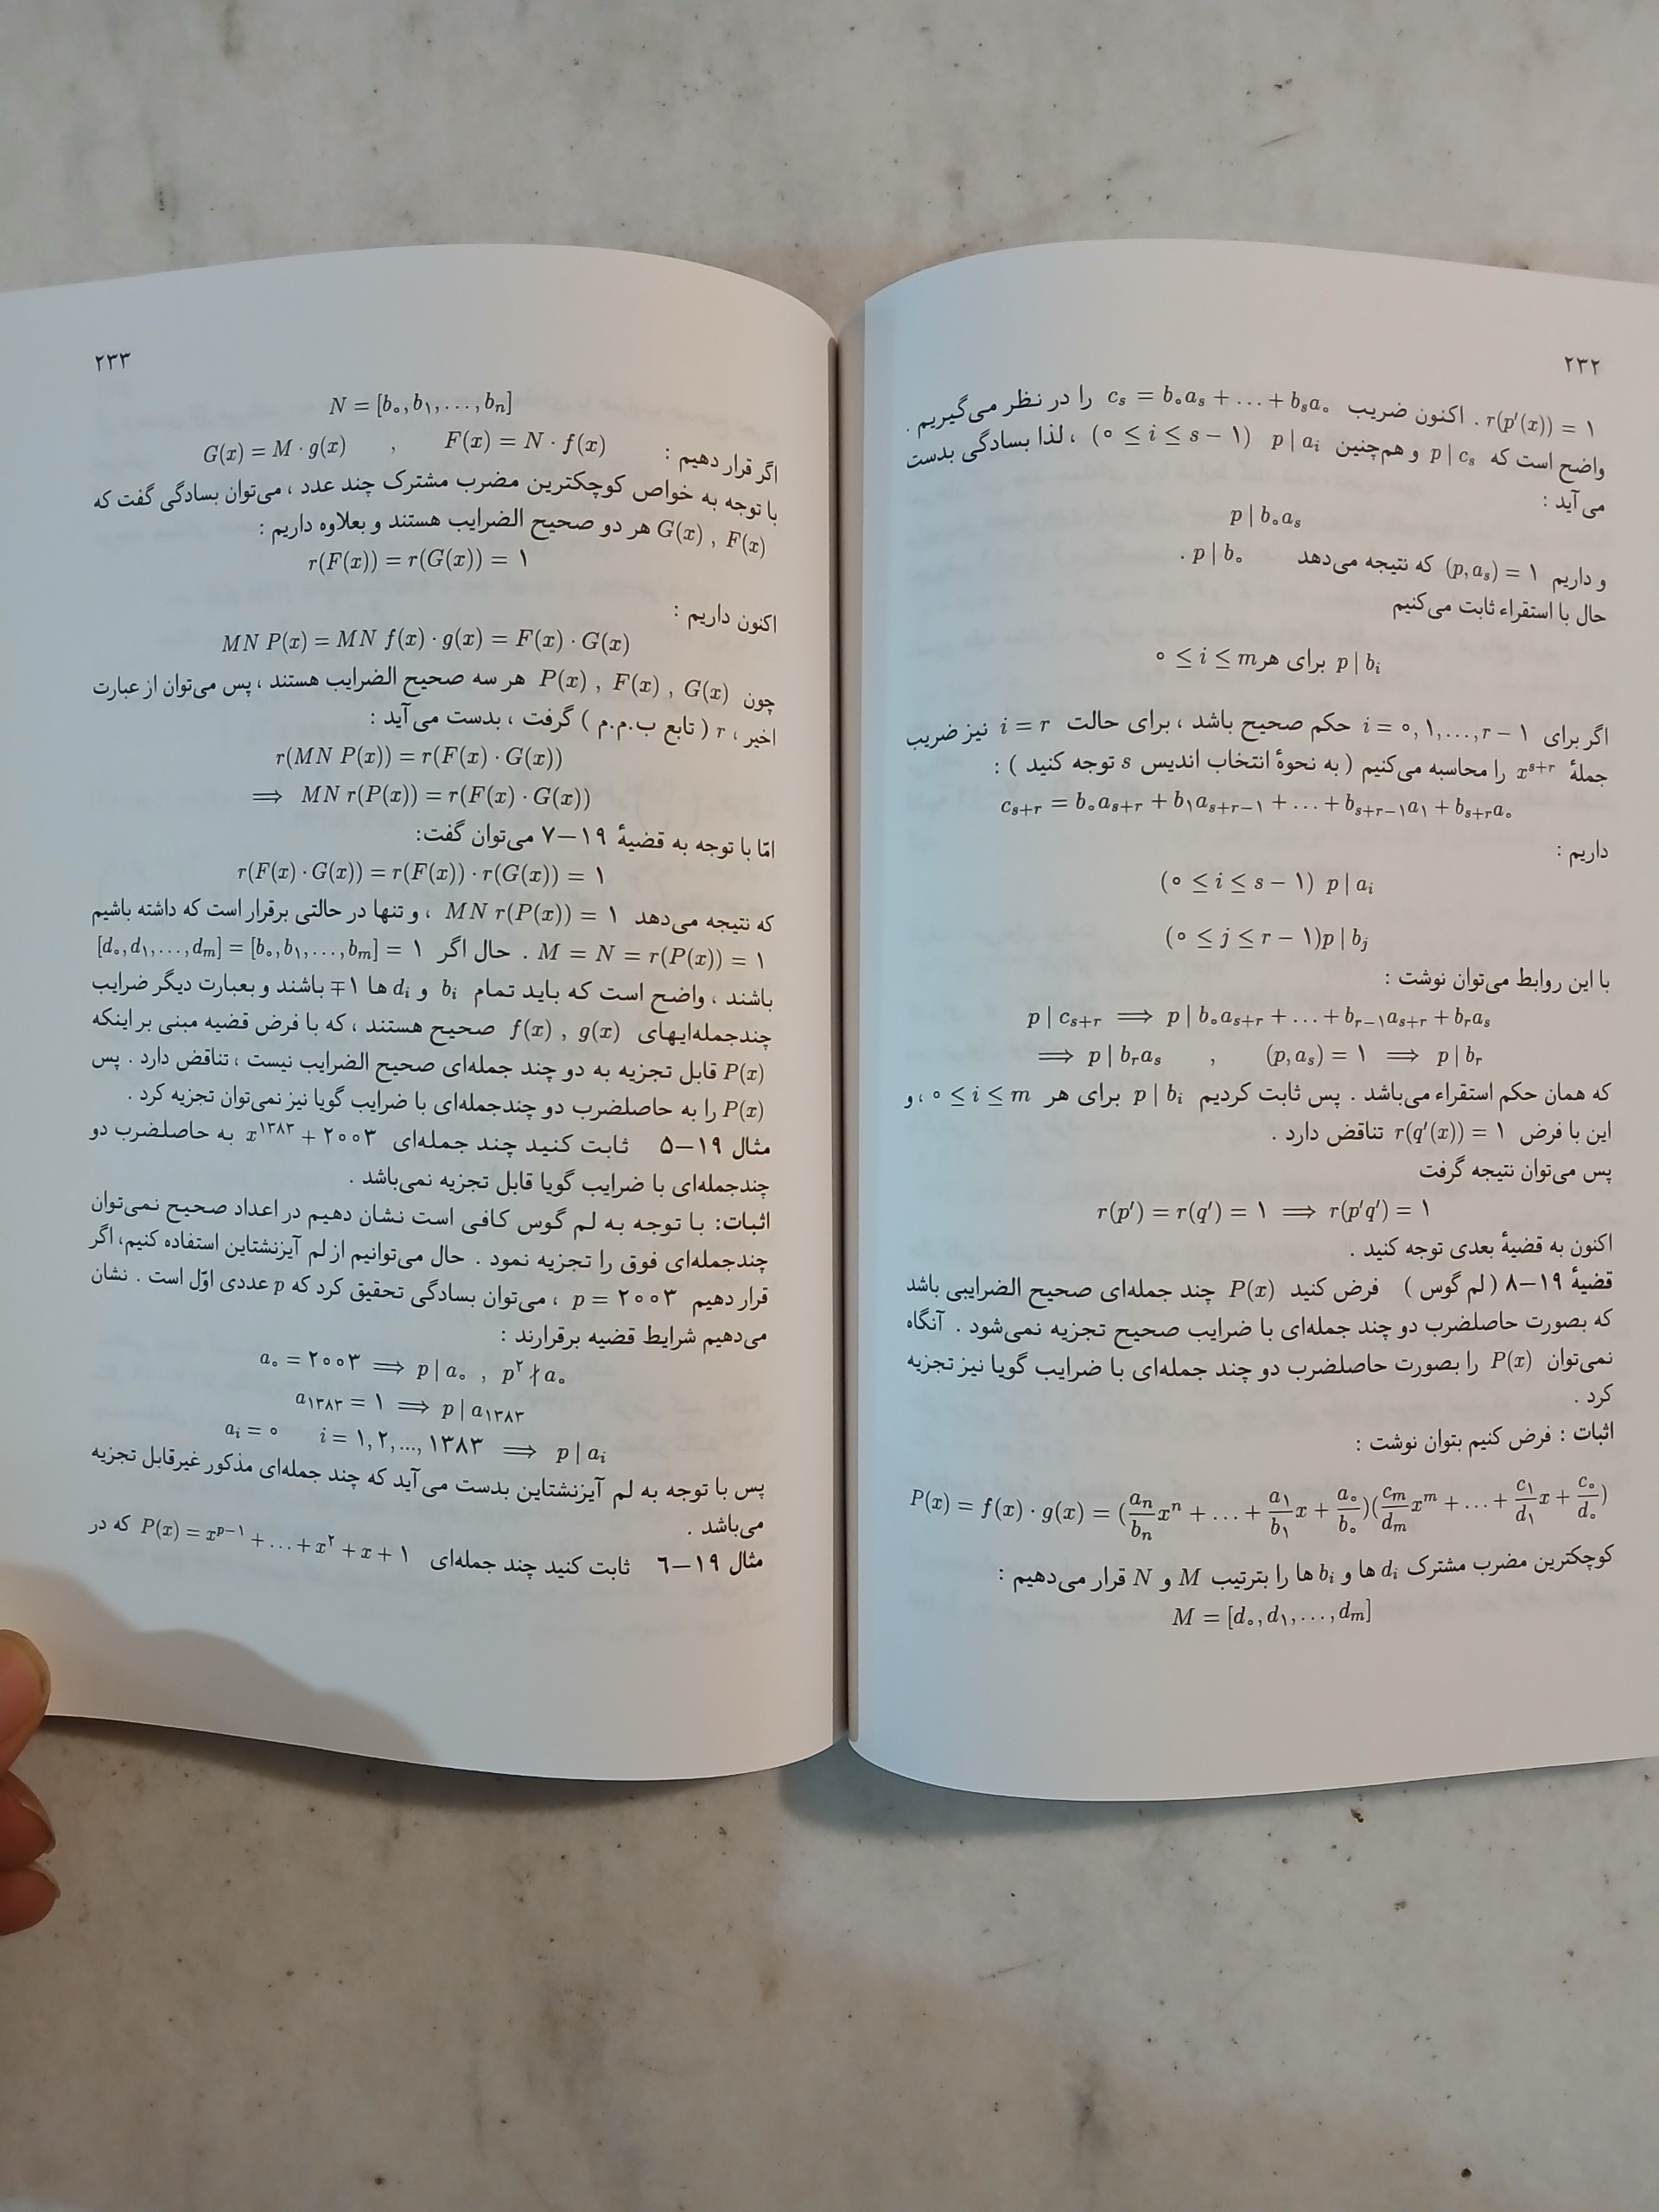 ۲۳۲
r(p′(x)) = ۱ . اکنون ضریب c_s = b_۰a_s + ... + b_sa_۰ را در نظر می‌گیریم .
واضح است که p | c_s و هم‌چنین p | a_i (۰ ≤ i ≤ s − ۱) ، لذا بسادگی بدست
می آید :
p | b_۰a_s
و داریم (p, a_s) = ۱ که نتیجه می‌دهد p | b_۰ .
حال با استقراء ثابت می‌کنیم
p | b_i برای هر ۰ ≤ i ≤ m
اگر برای i = ۰, ۱, ..., r − ۱ حکم صحیح باشد ، برای حالت i = r نیز ضریب
جملهٔ x^{s+r} را محاسبه می‌کنیم ( به نحوهٔ انتخاب اندیس s توجه کنید ) :
c_{s+r} = b_۰a_{s+r} + b_۱a_{s+r−۱} + ... + b_{s+r−۱}a_۱ + b_{s+r}a_۰
داریم :
(۰ ≤ i ≤ s − ۱) p | a_i
(۰ ≤ j ≤ r − ۱)p | b_j
با این روابط می‌توان نوشت :
p | c_{s+r} ⟹ p | b_۰a_{s+r} + ... + b_{r−۱}a_{s+r} + b_ra_s
⟹ p | b_ra_s , (p, a_s) = ۱ ⟹ p | b_r
که همان حکم استقراء می‌باشد . پس ثابت کردیم p | b_i برای هر ۰ ≤ i ≤ m ، و
این با فرض r(q′(x)) = ۱ تناقض دارد .
پس می‌توان نتیجه گرفت
r(p′) = r(q′) = ۱ ⟹ r(p′q′) = ۱
اکنون به قضیهٔ بعدی توجه کنید .
قضیهٔ ۱۹−۸ ( لم گوس ) فرض کنید P(x) چند جمله‌ای صحیح الضرایبی باشد
که بصورت حاصلضرب دو چند جمله‌ای با ضرایب صحیح تجزیه نمی‌شود . آنگاه
نمی‌توان P(x) را بصورت حاصلضرب دو چند جمله‌ای با ضرایب گویا نیز تجزیه
کرد .
اثبات : فرض کنیم بتوان نوشت :
P(x) = f(x) · g(x) = (a_n/b_n x^n + ... + a_۱/b_۱ x + a_۰/b_۰)(c_m/d_m x^m + ... + c_۱/d_۱ x + c_۰/d_۰)
کوچکترین مضرب مشترک d_i ها و b_i ها را بترتیب M و N قرار می‌دهیم :
M = [d_۰, d_۱, ..., d_m]
۲۳۳
N = [b_۰, b_۱, ..., b_n]
اگر قرار دهیم : F(x) = N · f(x) , G(x) = M · g(x)
با توجه به خواص کوچکترین مضرب مشترک چند عدد ، می‌توان بسادگی گفت که
F(x) , G(x) هر دو صحیح الضرایب هستند و بعلاوه داریم :
r(F(x)) = r(G(x)) = ۱
اکنون داریم :
MN P(x) = MN f(x) · g(x) = F(x) · G(x)
چون P(x) , F(x) , G(x) هر سه صحیح الضرایب هستند ، پس می‌توان از عبارت
اخیر ، r ( تابع ب.م.م ) گرفت ، بدست می آید :
r(MN P(x)) = r(F(x) · G(x))
⟹ MN r(P(x)) = r(F(x) · G(x))
امّا با توجه به قضیهٔ ۱۹−۷ می‌توان گفت:
r(F(x) · G(x)) = r(F(x)) · r(G(x)) = ۱
که نتیجه می‌دهد MN r(P(x)) = ۱ ، و تنها در حالتی برقرار است که داشته باشیم
M = N = r(P(x)) = ۱ . حال اگر [d_۰, d_۱, ..., d_m] = [b_۰, b_۱, ..., b_m] = ۱
باشند ، واضح است که باید تمام b_i و d_i ها ∓۱ باشند و بعبارت دیگر ضرایب
چندجمله‌ایهای f(x) , g(x) صحیح هستند ، که با فرض قضیه مبنی بر اینکه
P(x) قابل تجزیه به دو چند جمله‌ای صحیح الضرایب نیست ، تناقض دارد . پس
P(x) را به حاصلضرب دو چندجمله‌ای با ضرایب گویا نیز نمی‌توان تجزیه کرد .
مثال ۱۹−۵ ثابت کنید چند جمله‌ای x^{۱۳۸۳} + ۲۰۰۳ به حاصلضرب دو
چندجمله‌ای با ضرایب گویا قابل تجزیه نمی‌باشد .
اثبات: با توجه به لم گوس کافی است نشان دهیم در اعداد صحیح نمی‌توان
چندجمله‌ای فوق را تجزیه نمود . حال می‌توانیم از لم آیزنشتاین استفاده کنیم، اگر
قرار دهیم p = ۲۰۰۳ ، می‌توان بسادگی تحقیق کرد که p عددی اوّل است . نشان
می‌دهیم شرایط قضیه برقرارند :
a_۰ = ۲۰۰۳ ⟹ p | a_۰ , p^۲ ∤ a_۰
a_{۱۳۸۳} = ۱ ⟹ p | a_{۱۳۸۳}
a_i = ۰ i = ۱, ۲, ..., ۱۳۸۳ ⟹ p | a_i
پس با توجه به لم آیزنشتاین بدست می آید که چند جمله‌ای مذکور غیرقابل تجزیه
می‌باشد .
مثال ۱۹−۶ ثابت کنید چند جمله‌ای P(x) = x^{p−۱} + ... + x^۲ + x + ۱ که در